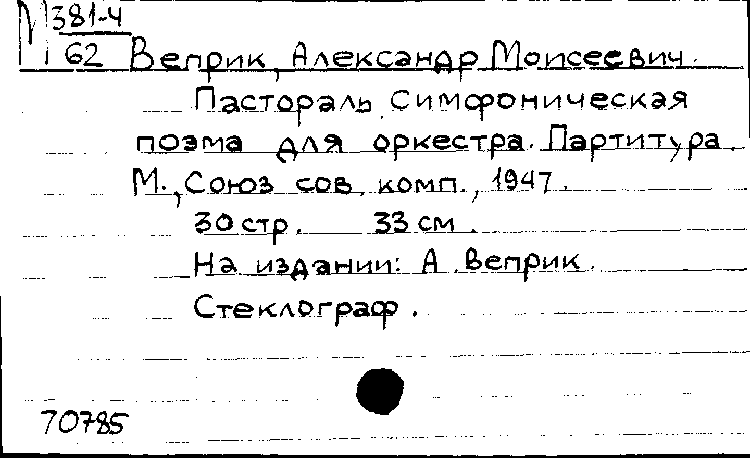 М 381-4
62 Веприк, Александр Моисеевич.
Пастораль. Симфоническая
поэма для оркестра. Партитура.
М., Союз сов. комп., 1947.
30 стр. 33 см.
На издании: А. Веприк.
Стеклограф.
70785